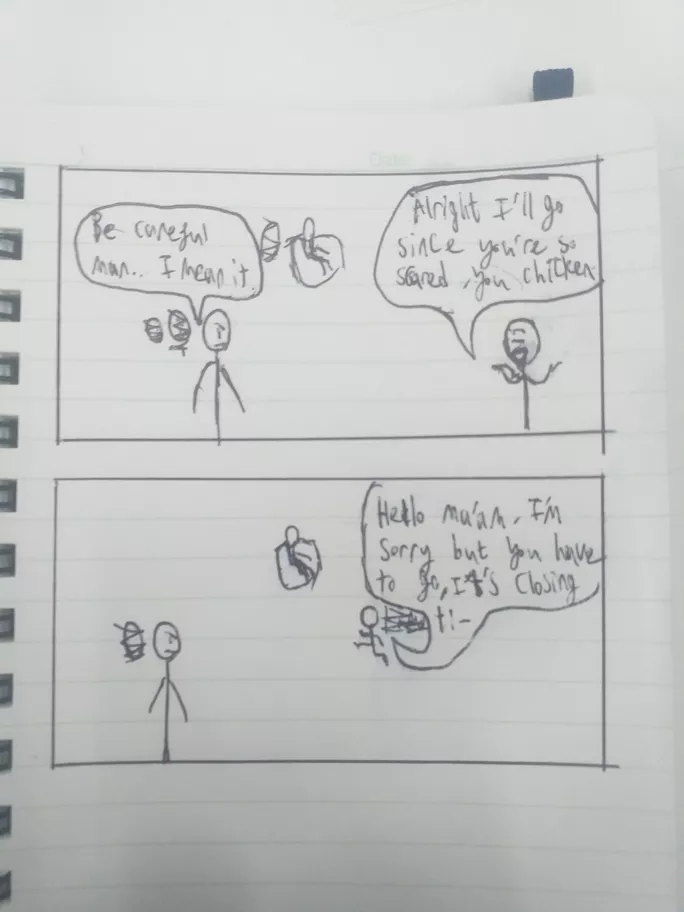 Be careful
man.. I mean it.
Alright I'll go
since you're so
scared, you chicken
Hello ma'am, I'm
sorry but you have
to go, It's closing
ti-